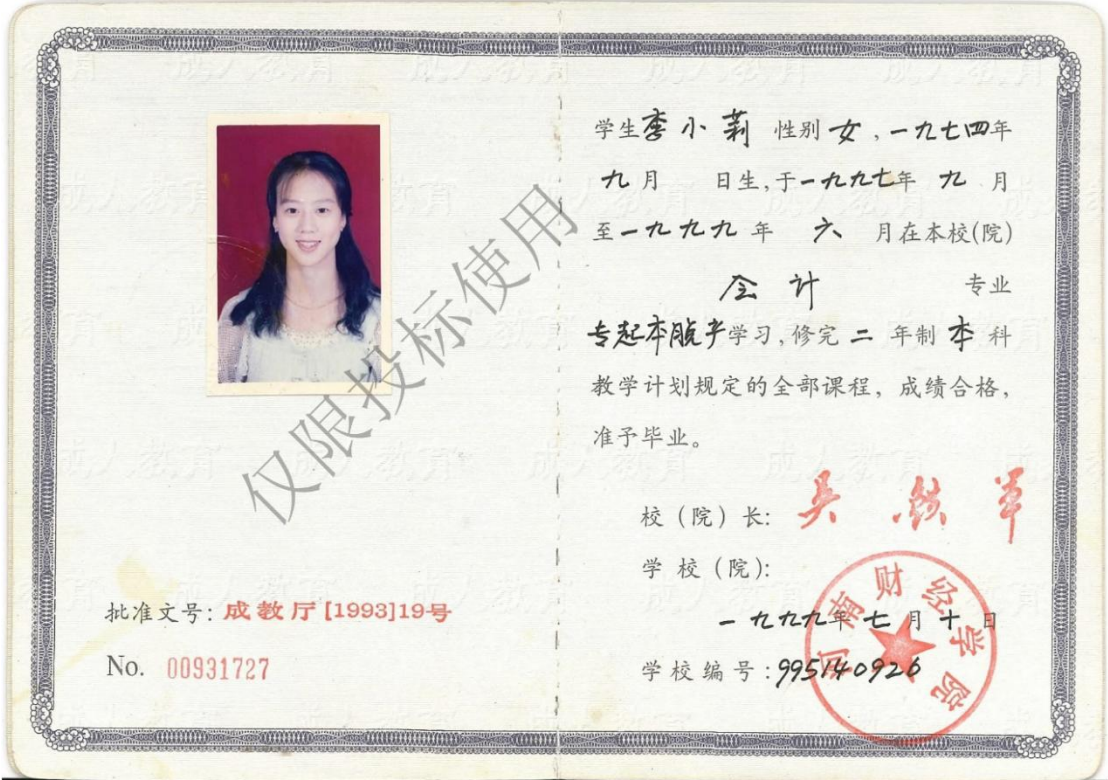 批准文号: 成教厅[1993]19号
No. 00931727
仅限投标使用
学生李小莉 性别女,一九七四年
九月 日生,于一九九七年 九 月
至一九九九年 六 月在本校(院)
会计 专业
专起本脱产学习,修完 二 年制 本 科
教学计划规定的全部课程，成绩合格，
准予毕业。
校（院）长: 吴铁军
学 校（院）:
一九九九年七月十日
学校编号:995140926
南财经学院
成人教育